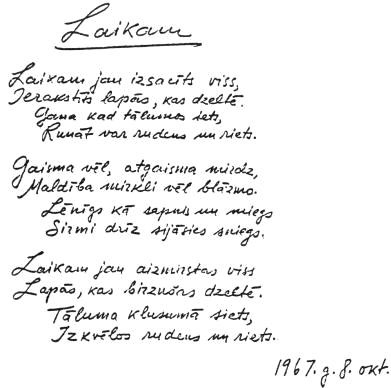 Laikam
Laikam jau izsacīts viss,
Ierakstīts lapās, kas dzeltē.
Gana kad tālumos iets,
Runāt var rudens un riets.
Gaisma vēl, atgaisma mirdz,
Maldība mirkli vēl blāzmo.
Lēnīgs kā sapnis un miegs
Sirmi drīz sijāsies sniegs.
Laikam jau aizmirstas viss
Lapās, kas birzušas dzeltē.
Tāluma klusumā siets,
Izkvēlos rudens un riets.
1967. g. 8. okt.